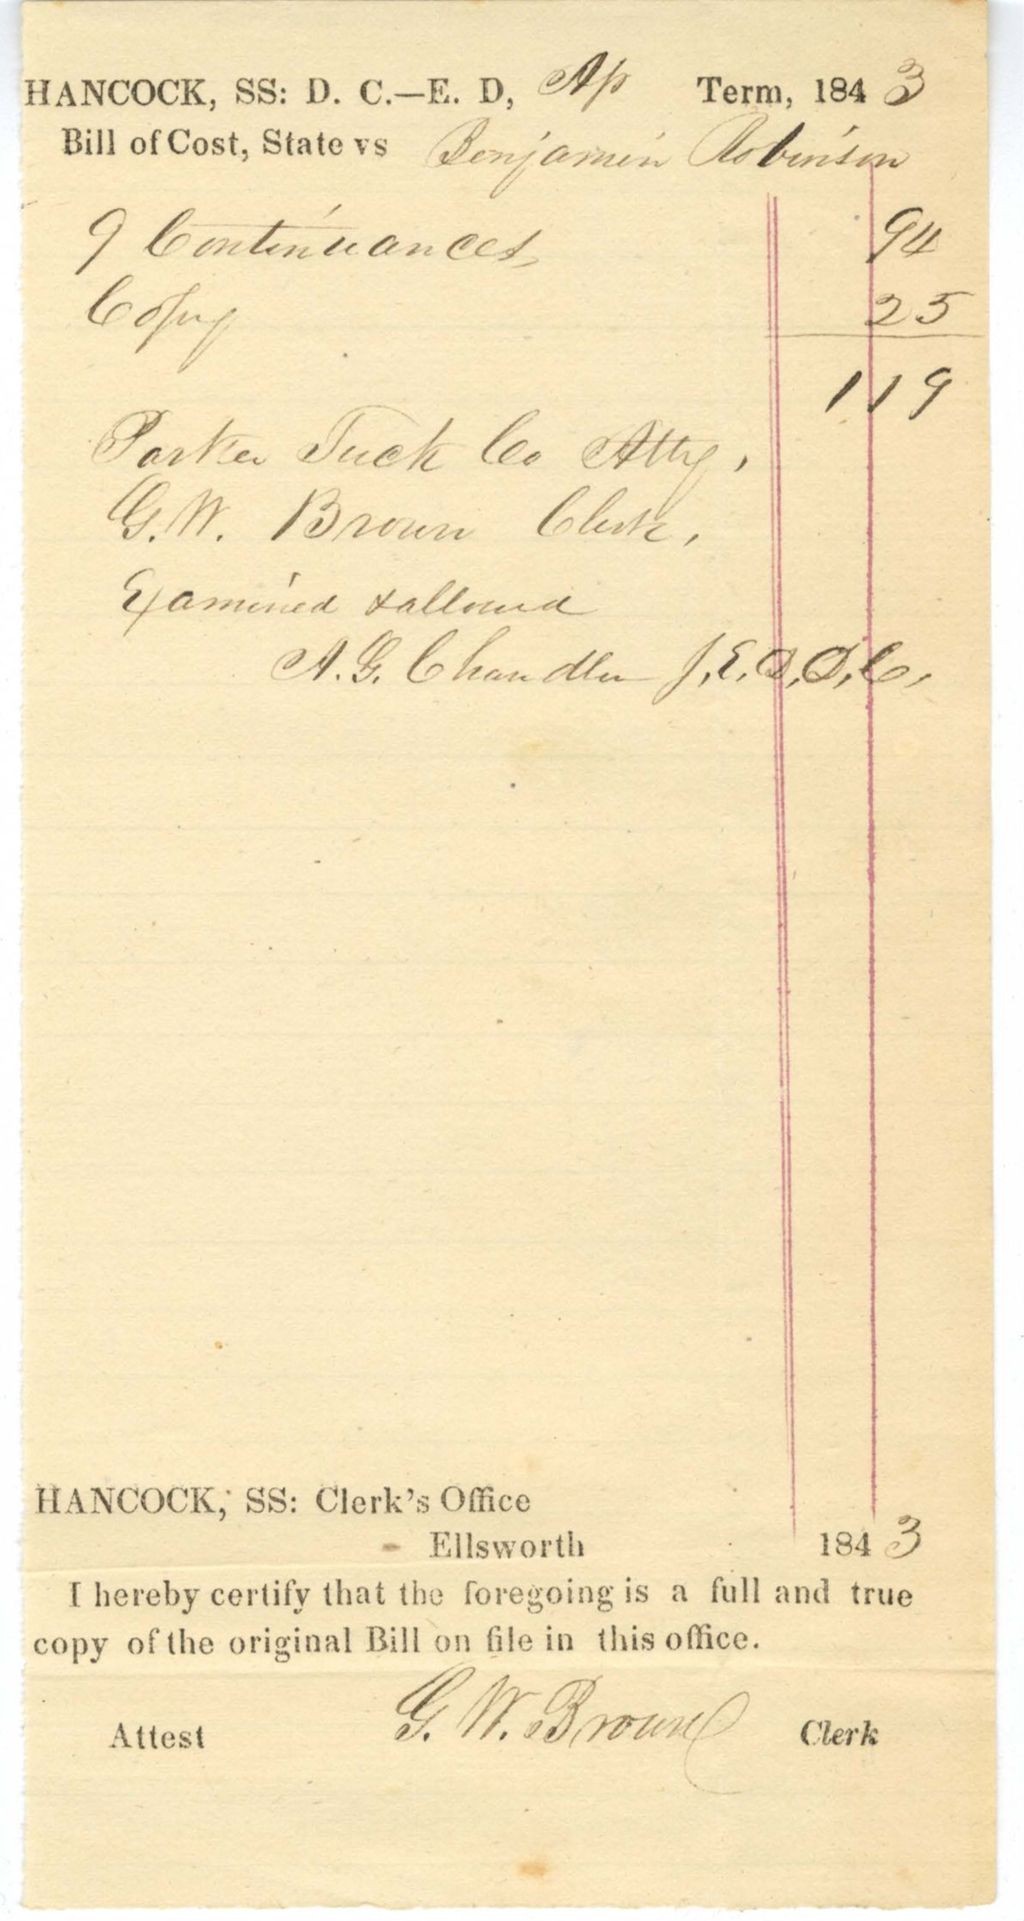 HANCOCK, SS: D. C.—E. D, Ap Term, 1843
Bill of Cost, State vs Benjamin Robinson
9 Continuances 94
Copy 25
119
Parker Tuck Co Atty,
G. W. Brown Clerk,
Examined & allowed
A. G. Chandler J. E. D. D. C.
HANCOCK, SS: Clerk's Office
Ellsworth 1843
I hereby certify that the foregoing is a full and true
copy of the original Bill on file in this office.
Attest G. W. Brown Clerk